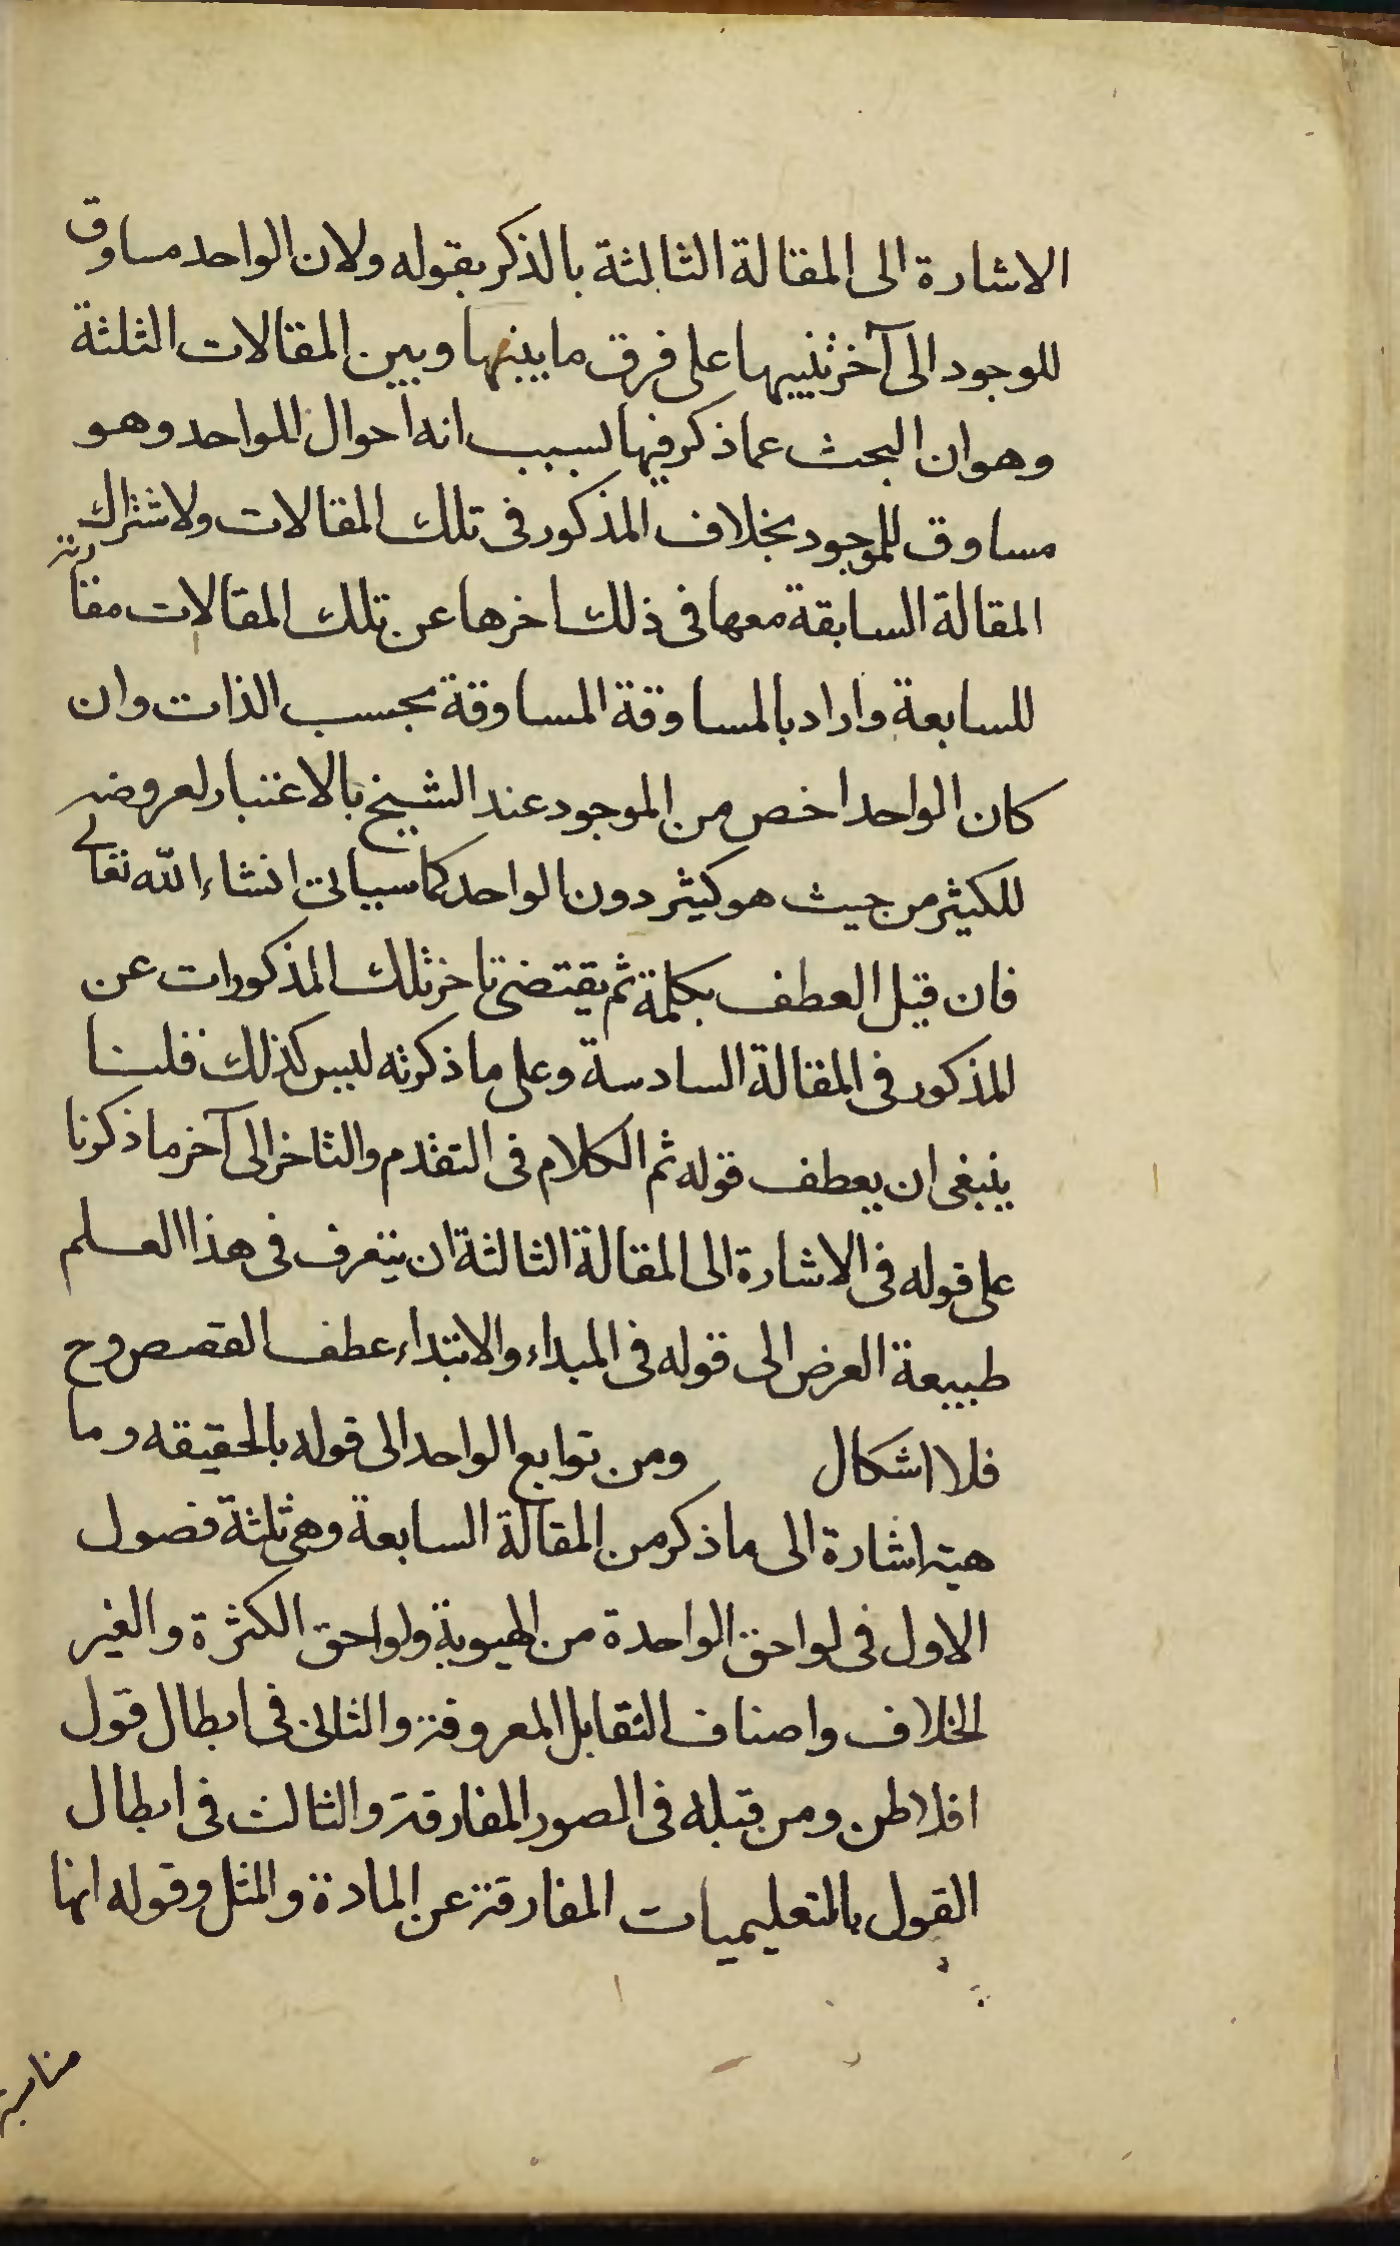 الاشارة الى المقالة الثالثة بالذكر بقوله ولان الواحد مساوق
للوجود الى آخر تنبيها على فرق ما بينها وبين المقالات الثلثة
وهو ان البحث عما ذكر فيها لسبب انه احوال للواحد وهو
مساوق للموجود بخلاف المذكور فى تلك المقالات ولاشتراك
المقالة السابقة معها فى ذلك اخرها عن تلك المقالات مقارنة
للسابعة واراد بالمساوقة المساوقة بحسب الذات وان
كان الواحد اخص من الموجود عند الشيخ بالاعتبار لعروضه
للكثير من حيث هو كثير دون الواحد كما سياتى انشاء الله تعالى
فان قيل العطف بكلمة ثم يقتضى تاخر تلك المذكورات عن
المذكور فى المقالة السادسة وعلى ما ذكرته ليس كذلك قلنا
ينبغى ان يعطف قوله ثم الكلام فى التقدم والتاخر الى آخر ما ذكرنا
على قوله فى الاشارة الى المقالة الثالثة ان يتعرف فى هذا العلم
طبيعة العرض الى قوله فى المبداء والابتداء عطف القصص وح
فلا اشكال ومن توابع الواحد الى قوله بالحقيقه وما
هيته اشارة الى ما ذكر من المقالة السابعة وهى ثلثة فصول
الاول فى لواحق الواحدة من الهيوية ولواحق الكثرة والغير
الخلاف واصناف التقابل المعروفة والثانى فى ابطال قول
افلاطن ومن قبله فى الصور المفارقة والثالث فى ابطال
القول بالتعليميات المفارقة عن المادة والمثل وقوله انها